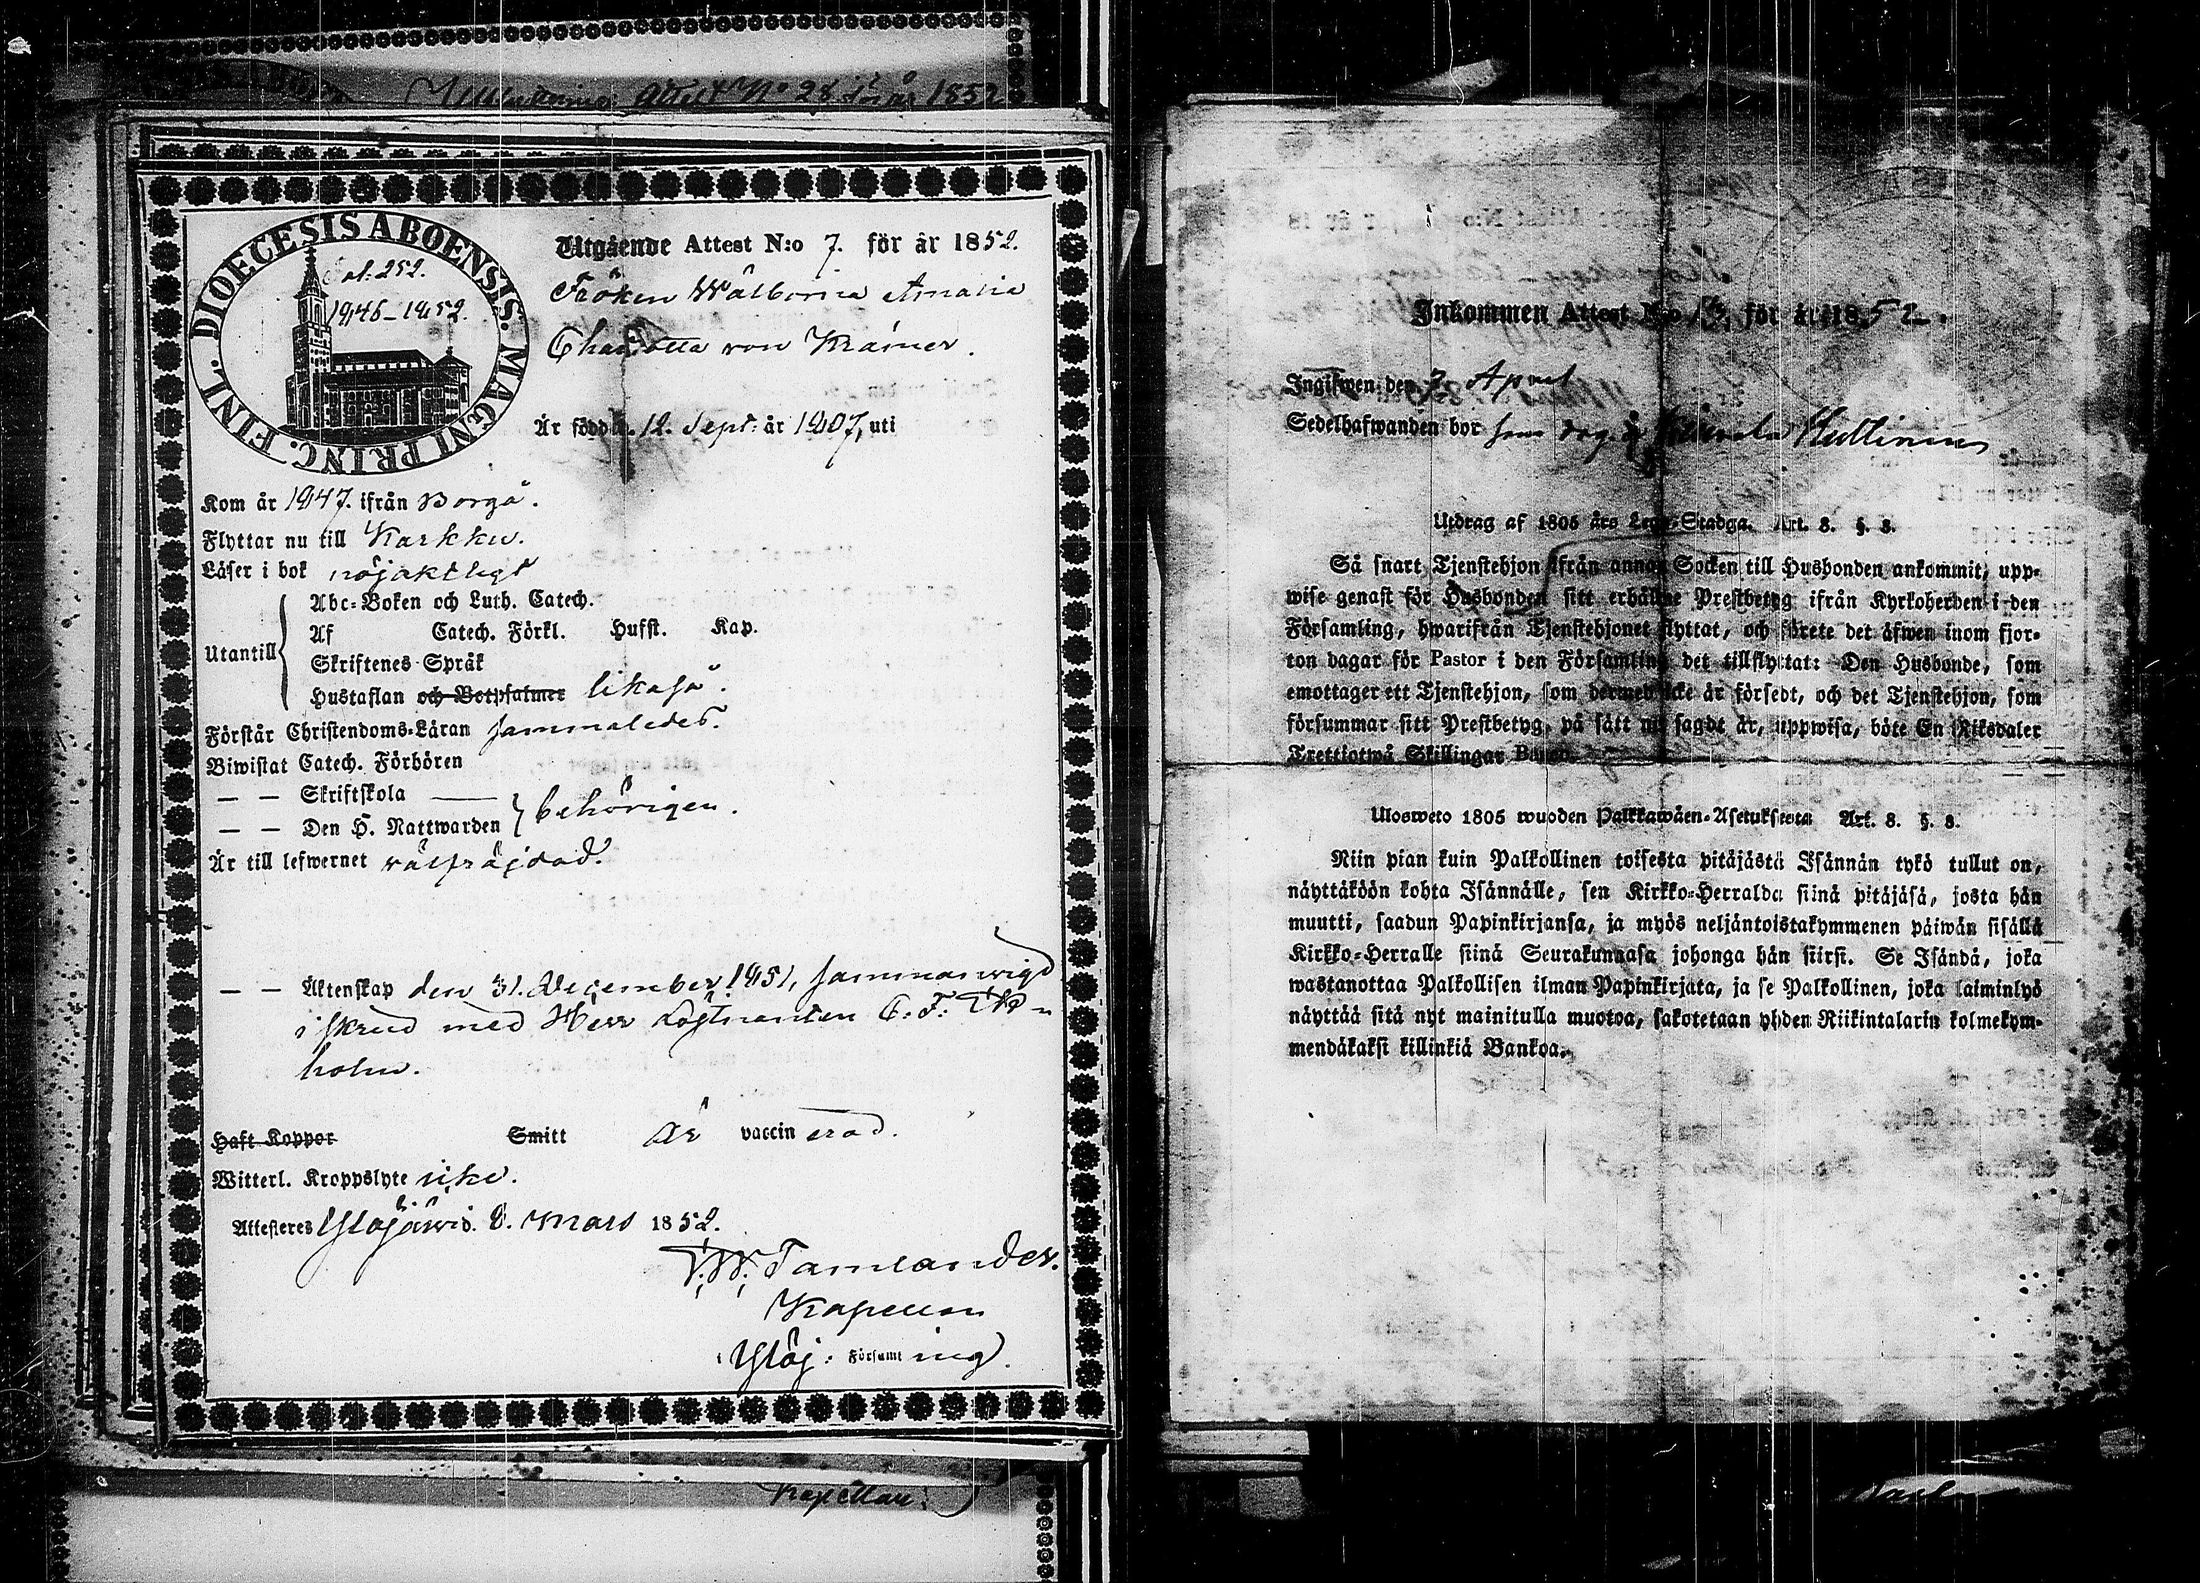 Attest No 28 för år 1852
DIOECESIS ABOENSIS. MAGNI PRINC. FINL.
Fol. 252.
1846-1852.
Utgående Attest N:o 7. för år 1852.
Fröken Walborina Amalia
Charlotta von Kræmer.
Är född d. 12. Sept: år 1807, uti
Kom år 1847. ifrån Borgå.
Flyttar nu till Karkku.
Läser i bok nöjaktligt
Utantill
Abc-Boken och Luth. Catech.
Af Catech. Förkl. Husft. Kap.
Skriftenes Språk
Hustaflan och Botpsalmer likaså.
Förstår Christendoms-Läran sammaledes.
Biwistat Catech. Förhören
— — Skriftskola
— — Den H. Nattwarden behörigen.
Är till lefwernet välfräjdad.
— — Äktenskap den 31. December 1851, sammanwigd
i skrud med Herr Löjtnanten C. F.
holm.
Haft Koppor Smitt är vaccinerad.
Witterl. Kroppslyte icke.
Attesteras Ylöjärvi d. 8. Mars 1852.
Tamlander.
Kapellan
i Ylöj: Församling.
Kapellan
Inkommen Attest N:o för år 1852.
Ingifwen den 7. April
Sedelhafwanden bor
Utdrag af 1805 års Lego-Stadga. Art. 8. §. 8.
Så snart Tjenstehjon ifrån annan Socken till Husbonden ankommit, upp-
wise genast för Husbonden sitt erhållne Prestbetyg ifrån Kyrkoherden i den
Församling, hwarifrån Tjenstehjonet flyttat, och förete det äfwen inom fjor-
ton dagar för Pastor i den Församling det tillflyttat: Den Husbonde, som
emottager ett Tjenstehjon, som dermed icke är försedt, och det Tjenstehjon, som
försummar sitt Prestbetyg, på sätt nu sagdt är, uppwisa, böte En Riksdaler
Trettiotwå Skillingar Banco.
Ulosweto 1805 wuoden Palkkawäen-Asetuksesta Art. 8. §. 8.
Niin pian kuin Palkollinen toisesta pitäjästä Isännän tykö tullut on,
näyttäköön kohta Isännälle, sen Kirkko-Herralda siinä pitäjäsä, josta hän
muutti, saadun Papinkirjansa, ja myös neljäntoistakymmenen päiwän sisällä
Kirkko-Herralle siinä Seurakunnasa johonga hän siirsi. Se Isändä, joka
wastanottaa Palkollisen ilman Papinkirjata, ja se Palkollinen, joka laiminlyö
näyttää sitä nyt mainitulla muotoa, sakotetaan yhden Riikintalarin kolmekym-
mendäkaksi killinkiä Bankoa.